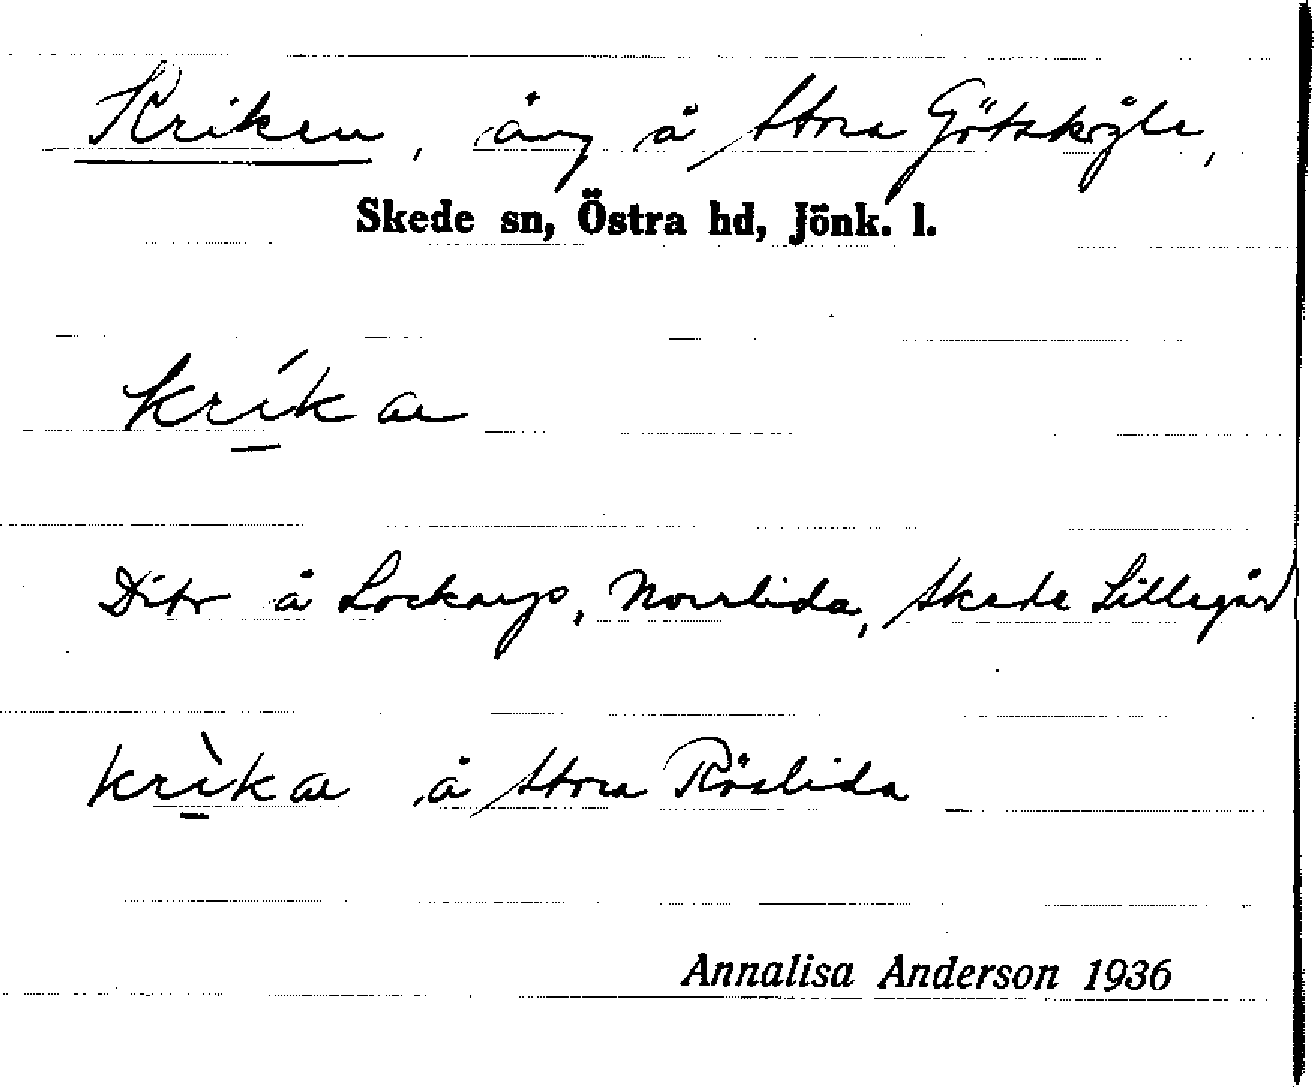 Kriken, äng å Stora Götskögle,
Skede sn, Östra hd, Jönk. l.
kríkæ
Dito å Lockarp, Norrlida, Skede Lillegård
krìkæ å Stora Röslida
Annalisa Anderson 1936